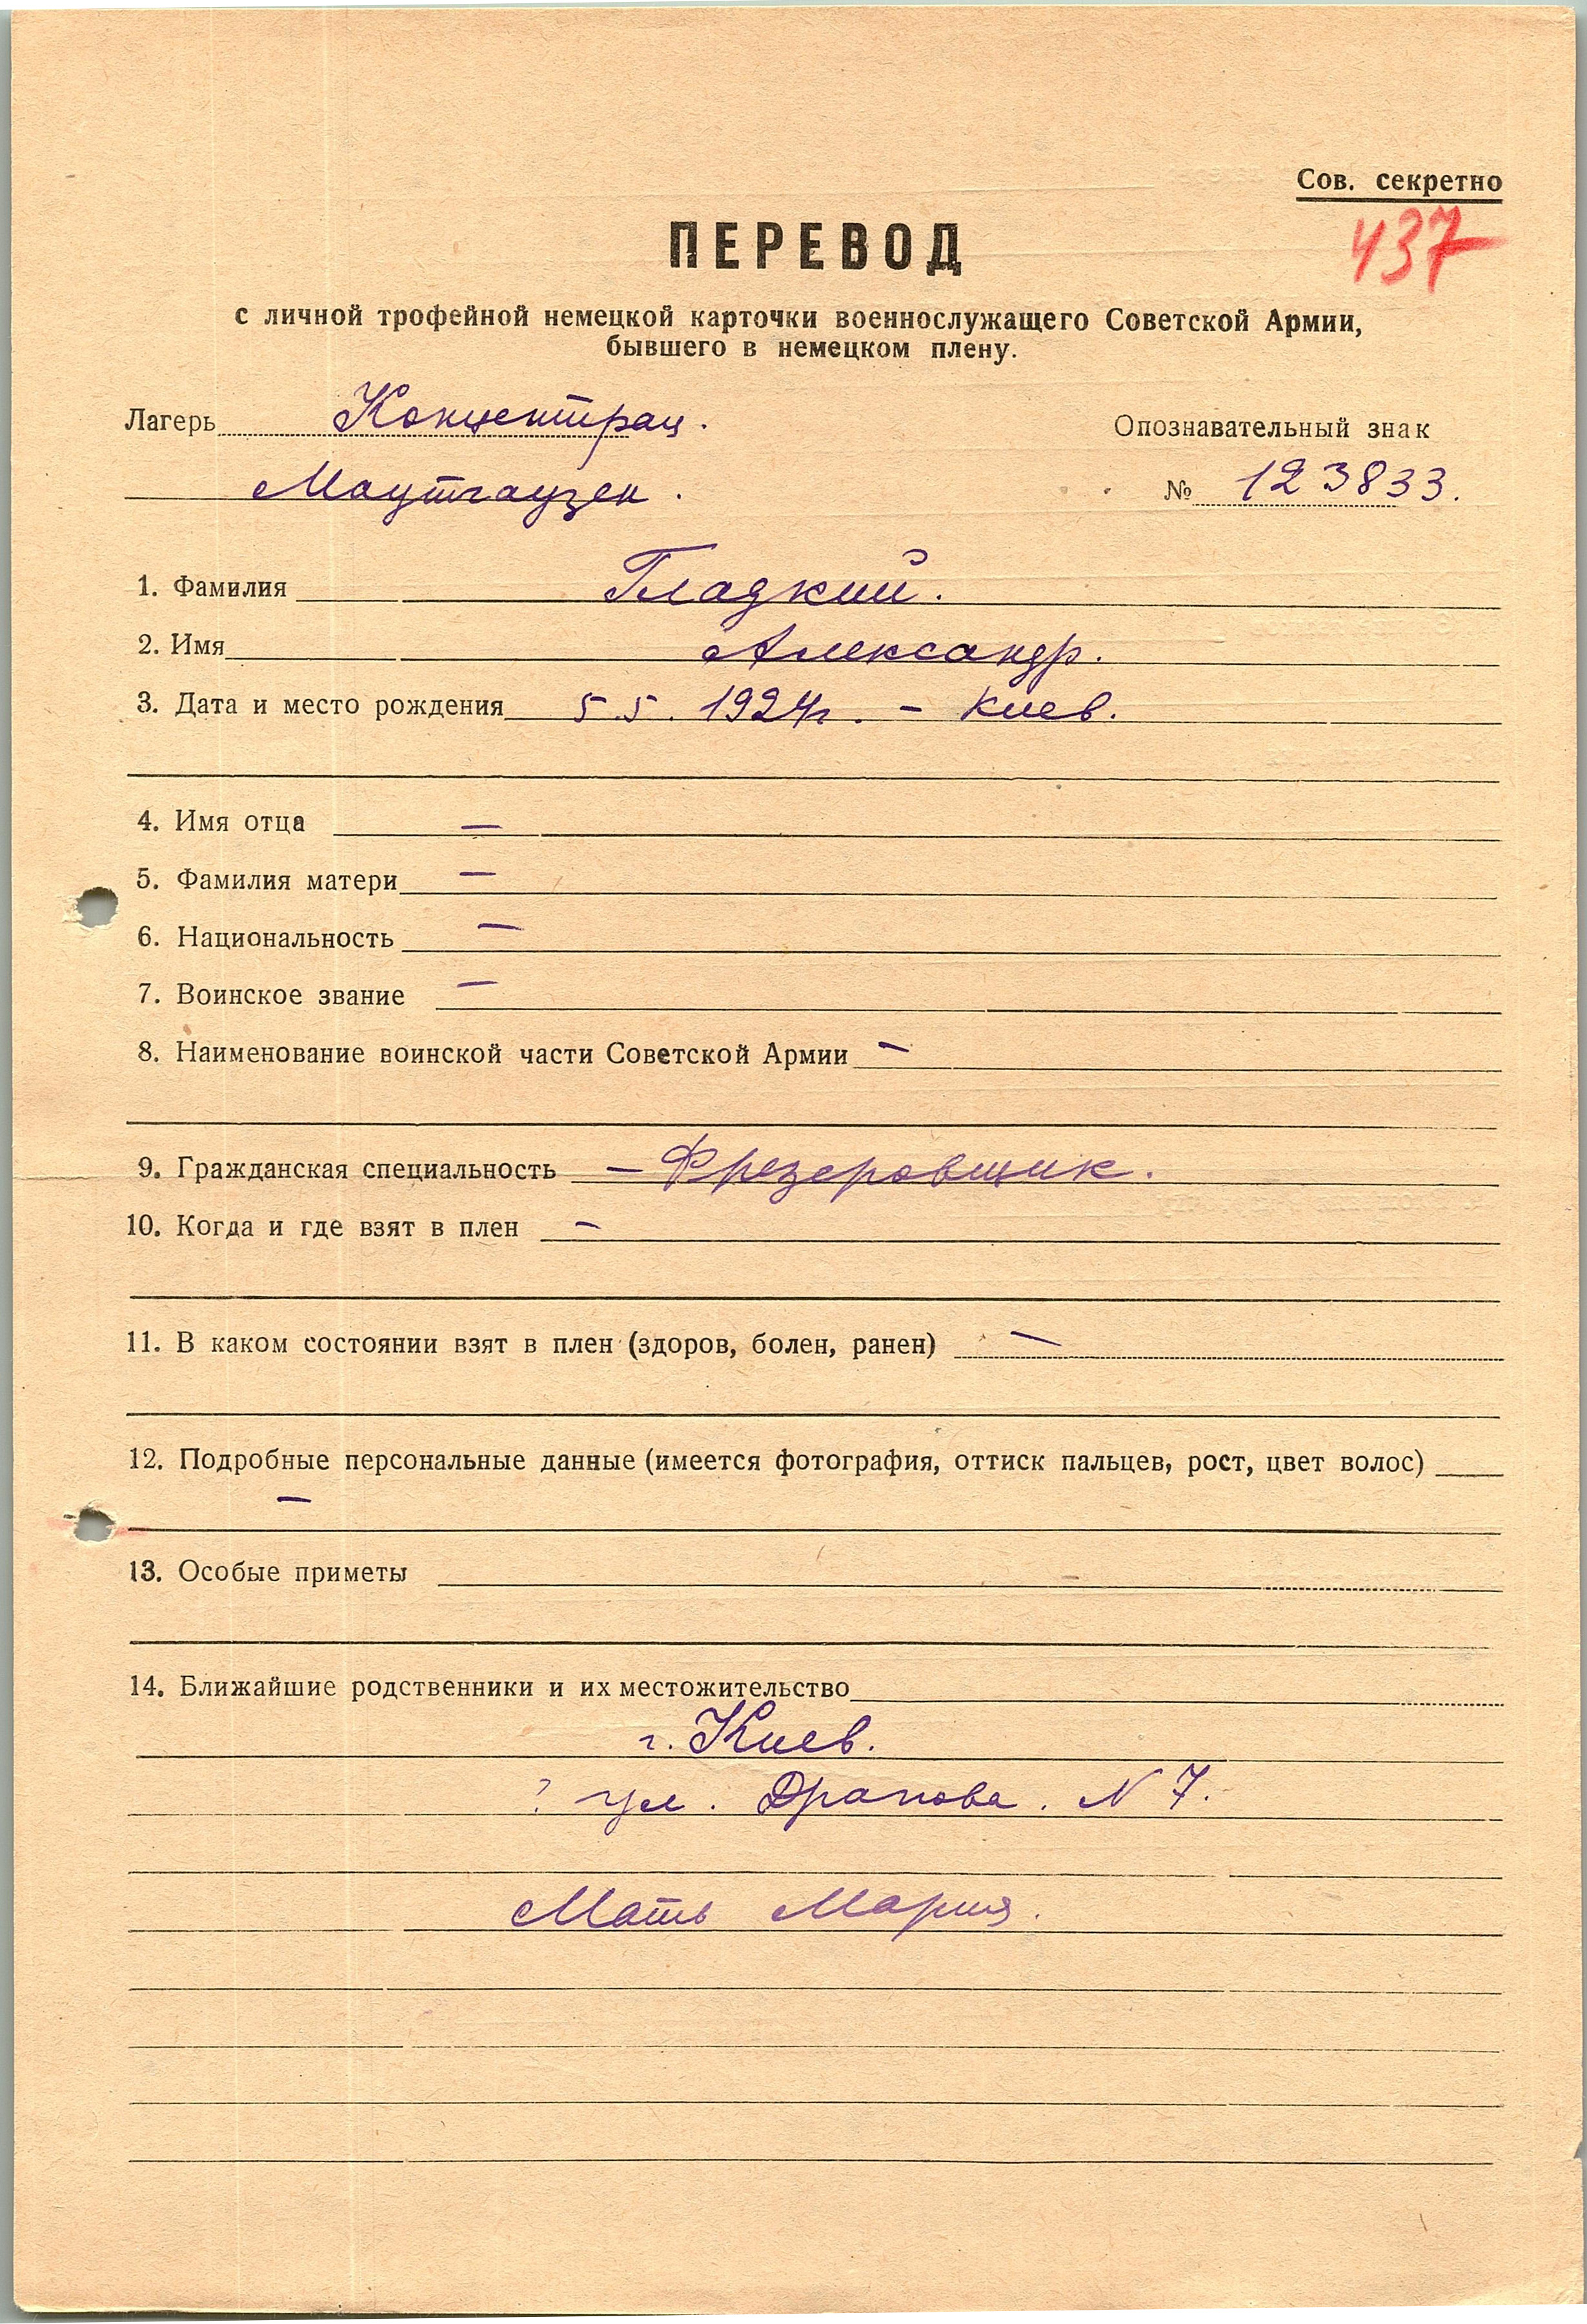 Сов. секретно
437
ПЕРЕВОД
с личной трофейной немецкой карточки военнослужащего Советской Армии,
бывшего в немецком плену.
Лагерь Концентрац.
Опознавательный знак
Маутгаузен.
№ 123833.
1. Фамилия Гладкий.
2. Имя Александр.
3. Дата и место рождения 5.5. 1924г. – Киев.
4. Имя отца —
5. Фамилия матери —
6. Национальность —
7. Воинское звание —
8. Наименование воинской части Советской Армии —
9. Гражданская специальность — Фрезеровщик.
10. Когда и где взят в плен —
11. В каком состоянии взят в плен (здоров, болен, ранен) —
12. Подробные персональные данные (имеется фотография, оттиск пальцев, рост, цвет волос)
—
13. Особые приметы
14. Ближайшие родственники и их местожительство
г. Киев.
? ул. Драпова. N 7.
Мать Мария.